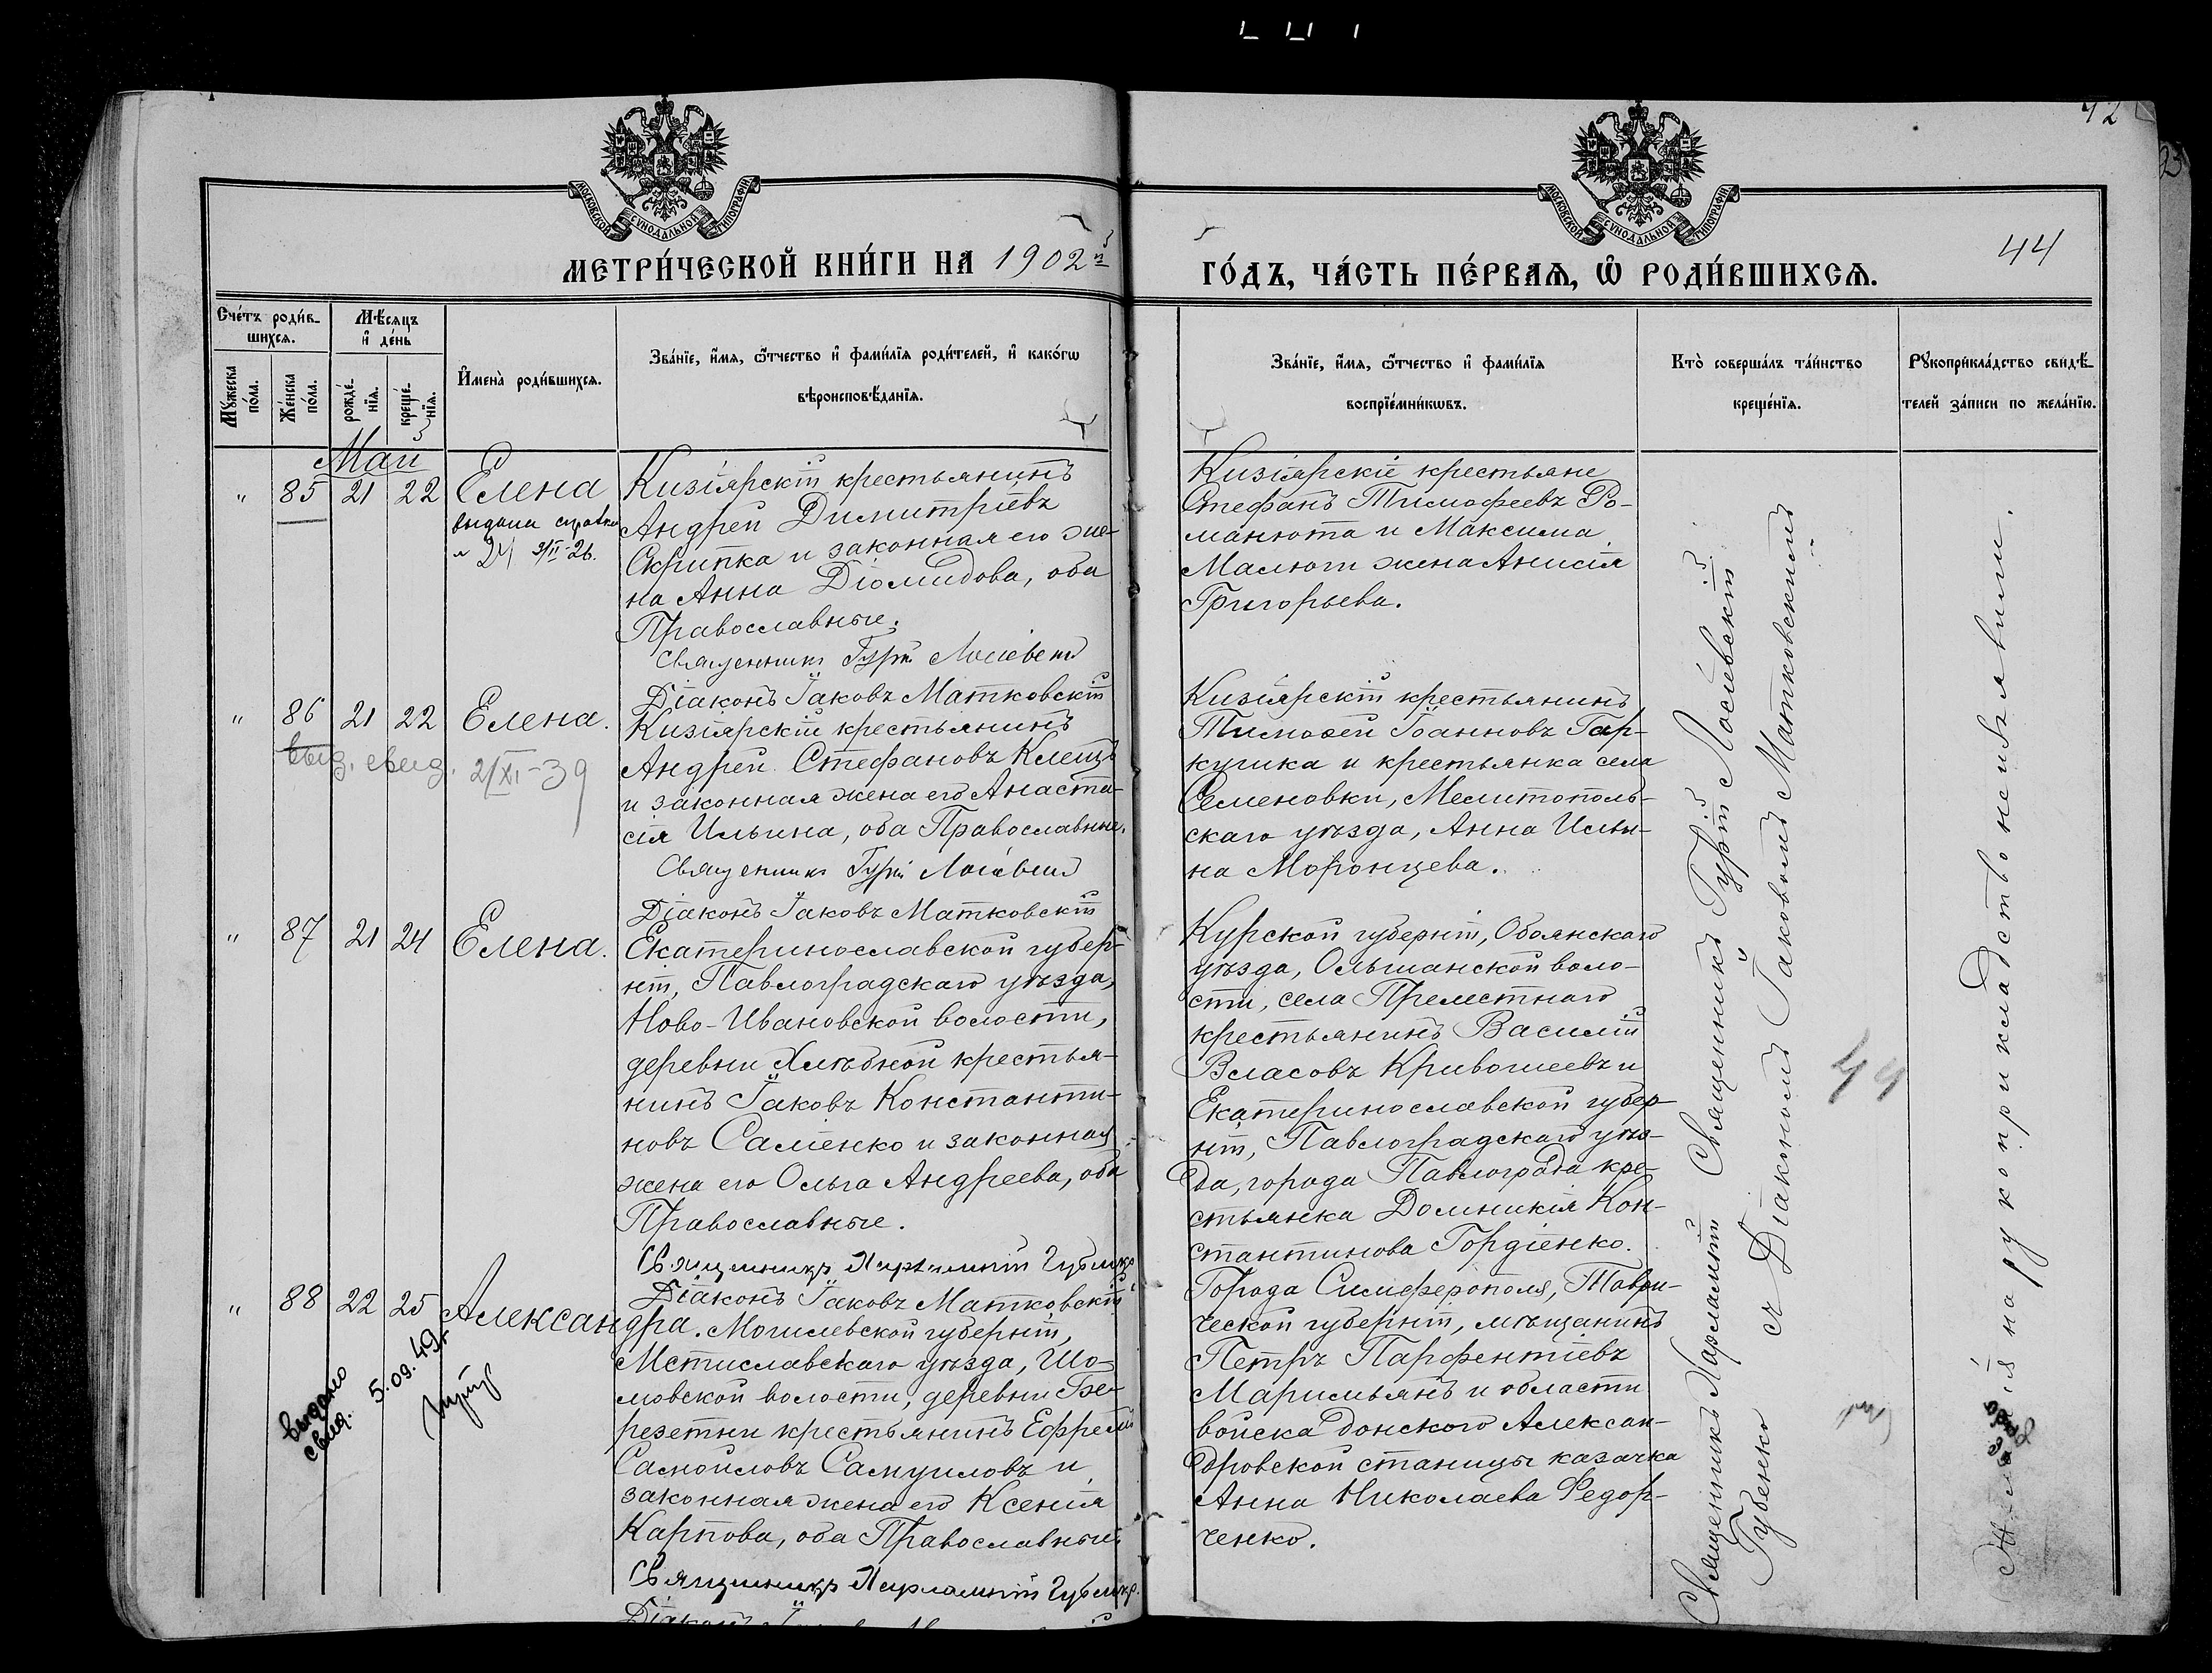 42
МОСКОВСКОЙ СѴНОДАЛЬНОЙ ТИПОГРАФІИ
МОСКОВСКОЙ СѴНОДАЛЬНОЙ ТИПОГРАФІИ
44
МЕТРИ́ЧЕСКОЙ КНИ́ГИ НА 1902й
ГО́ДЪ, ЧА́СТЬ ПЕ́РВАЯ, Ѡ҆ РОДИ́ВШИХСЯ.
Сче́тъ роди́в-
шихся.
Мѣ́сяцъ
и҆ де́нь
Му́жеска по́ла.
Же́нска по́ла.
рожде́-нїя.
креще́-нїя.
И҆мена̀ роди́вшихся.
Зва́нїе, и҆́мя, ѻ҆́тчество и҆ фами́лїя роди́телей, и҆ како́гѡ
вѣроисповѣ́данїя.
Зва́нїе, и҆́мя, ѻ҆́тчество и҆ фами́лїя
воспрїе́мникѡвъ.
Кто̀ соверша́лъ та́инство
креще́нїя.
Рꙋкоприкла́дство свидѣ́-
телей за́писи по жела́нїю.
Май
" 85 21 22 Елена
выдана справка
Кизіярскій крестьянинъ
Андрей Димитріевъ
Скрипка и законная его же-
на Анна Діомидова, оба
Православные.
Священникъ Гурій Лосіевскій
Діаконъ Іаковъ Матковскій
Кизіярскіе крестьяне
Стефанъ Тимофеевъ Ро-
манюта и Максима
Малюты жена Анисія
Григорьева.
" 86 21 22 Елена.
выд. свид. 2/XI-39
Кизіярскій крестьянинъ
Андрей Стефановъ Клещъ
и законная жена его Анаста-
сія Ильина, оба Православные.
Священникъ Гурій Лосіевскій
Діаконъ Іаковъ Матковскій
Кизіярскій крестьянинъ
Тимоѳей Іоанновъ Гар-
кушка и крестьянка села
Семеновки, Мелитополь-
скаго уѣзда, Анна Ильи-
на Моронцева.
" 87 21 24 Елена.
Екатеринославской губер-
ніи, Павлоградскаго уѣзда,
Ново-Ивановской волости,
деревни Хлѣбной крестья-
нинъ Іаковъ Константи-
новъ Саліенко и законная
жена его Ольга Андреева, оба
Православные.
Священникъ Харлампій Губенко
Діаконъ Іаковъ Матковскій
Курской губерніи, Обоянскаго
уѣзда, Ольшанской воло-
сти, села Прелестнаго
крестьянинъ Василій
Власовъ Кривошеевъ и
Екатеринославской губер-
ніи, Павлоградскаго уѣз-
да, города Павлограда кре-
стьянка Домникія Кон-
стантинова Гордіенко.
" 88 22 25 Александра.
выдано
свид. 5.09.49г.
Могилевской губерніи,
Мстиславскаго уѣзда, Шо-
мовской волости, деревни Бе-
резетни крестьянинъ Ефремъ
Самойловъ Самуиловъ и
законная жена его Ксенія
Карпова, оба Православные.
Священникъ Харлампій Губенко.
Города Симферополя, Таври-
ческой губерніи, мѣщанинъ
Петръ Парфентіевъ
Маримьянъ и области
войска Донского Алексан-
дровской станицы казачка
Анна Николаева Федор-
ченко.
Священникъ Харлампій Священникъ Гурій Лосіевскій
Губенко съ Діакономъ Іаковомъ Матковскимъ
44
на рукоприкладство не изъявили.